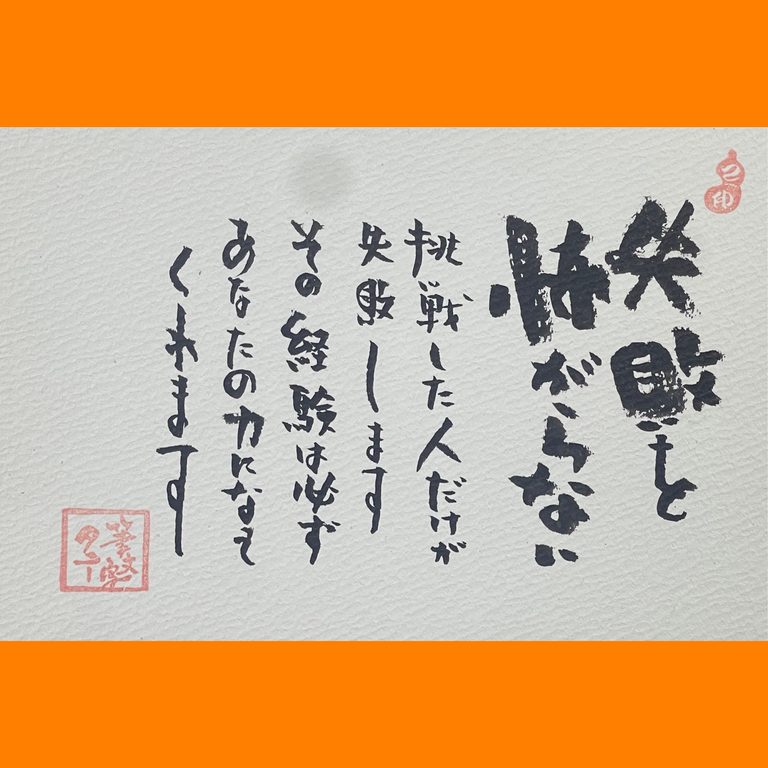 失敗を
怖がらない
挑戦した人だけが
失敗します
その経験は必ず
あなたの力になって
くれます